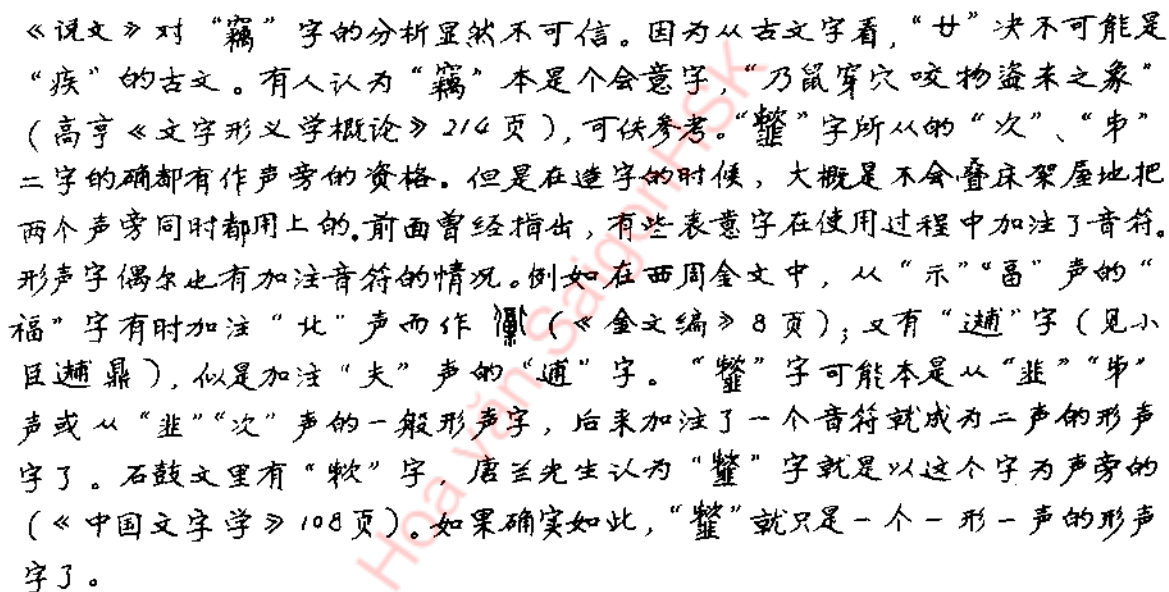 《说文》对“竊”字的分析显然不可信。因为从古文字看,“廿”决不可能是
“疾”的古文。有人认为“竊”本是个会意字,“乃鼠穿穴咬物盗米之象”
(高亨《文字形义学概论》214页),可供参考。“䪢”字所从的“次”、“𠂔”
二字的确都有作声旁的资格。但是在造字的时候,大概是不会叠床架屋地把
两个声旁同时都用上的。前面曾经指出,有些表意字在使用过程中加注了音符。
形声字偶尔也有加注音符的情况。例如在西周金文中,从“示”“畐”声的“
福”字有时加注“北”声而作(《金文编》8页);又有“”字(见小
臣鼎),似是加注“夫”声的“逋”字。“䪢”字可能本是从“韭”“𠂔”
声或从“韭”“次”声的一般形声字,后来加注了一个音符就成为二声的形声
字了。石鼓文里有“”字,唐兰先生认为“䪢”字就是以这个字为声旁的
(《中国文字学》108页)。如果确实如此,“䪢”就只是一个一形一声的形声
字了。
Hoa văn SaigonHSK